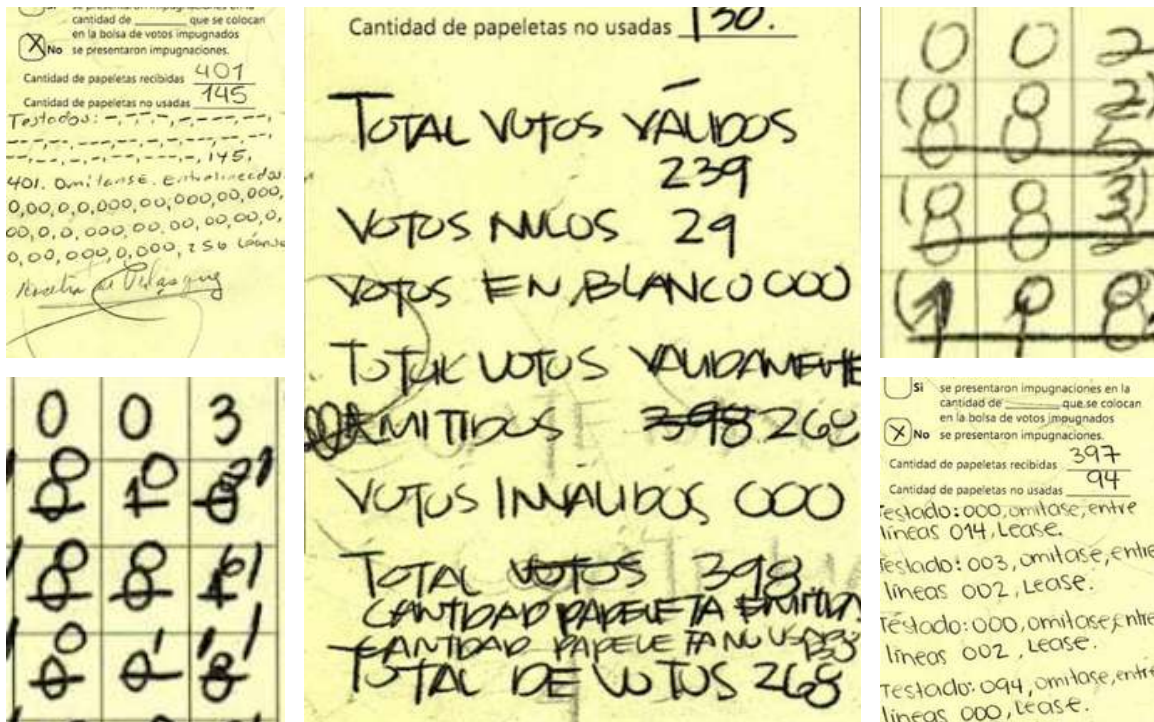 cantidad de ______ que se colocan
en la bolsa de votos impugnados
X No se presentaron impugnaciones.
Cantidad de papeletas recibidas 401
Cantidad de papeletas no usadas 145
Testados: -, -, -, -, -, -, -,
145,
401. Omitanse. Entrelineados
0,00,0,0,000,00,000,00,000,
00,0,0,000,00,00,00,00,0,
0,00,000,0,000,256
Cantidad de papeletas no usadas 130.
TOTAL VOTOS VÁLIDOS
239
VOTOS NULOS 29
VOTOS EN BLANCO 000
TOTAL VOTOS VALIDAMENTE
EMITIDOS 398 268
VOTOS INVALIDOS 000
TOTAL VOTOS 398
CANTIDAD PAPELETA EMITIDA
CANTIDAD PAPELETA NO USADA
TOTAL DE VOTOS 268
0 0 2
0 0 3
Si se presentaron impugnaciones en la
cantidad de ______ que se colocan
en la bolsa de votos impugnados
X No se presentaron impugnaciones.
Cantidad de papeletas recibidas 397
Cantidad de papeletas no usadas 94
Testado: 000, omitase, entre
líneas 014, Lease.
Testado: 003, omitase, entre
líneas 002, Lease.
Testado: 000, omitase, entre
líneas 002, Lease.
Testado: 094, omitase, entre
líneas 000, Lease.